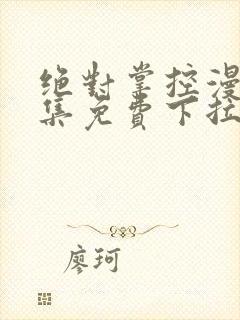 绝對掌控漫
集免費下拉
廖珂